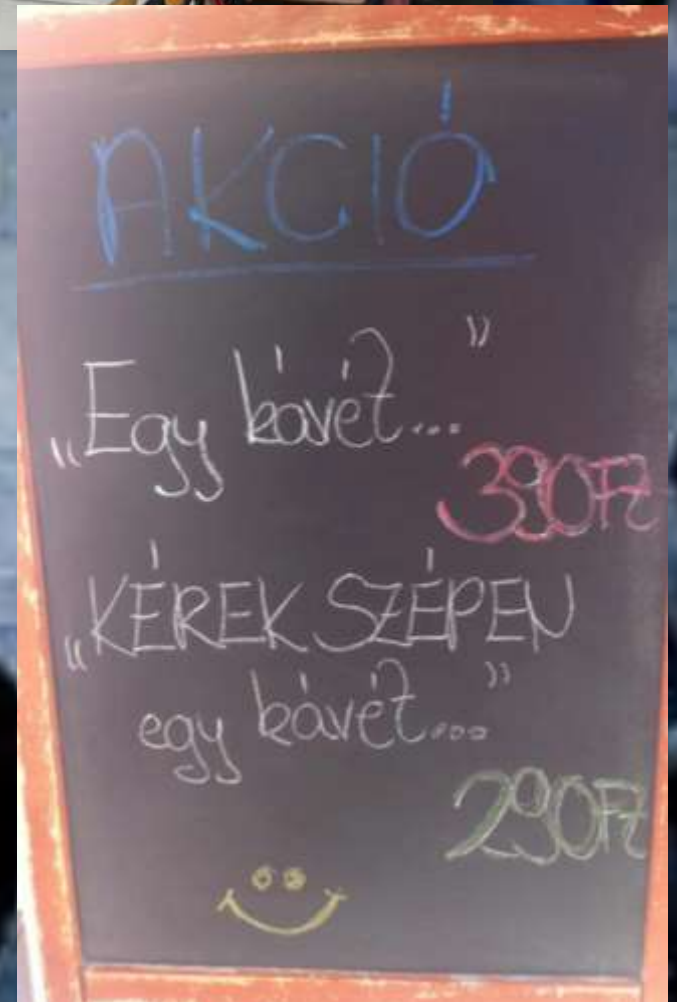 AKCIÓ
„Egy kávét..."
390Ft
„KÉREK SZÉPEN
egy kávét..."
290Ft